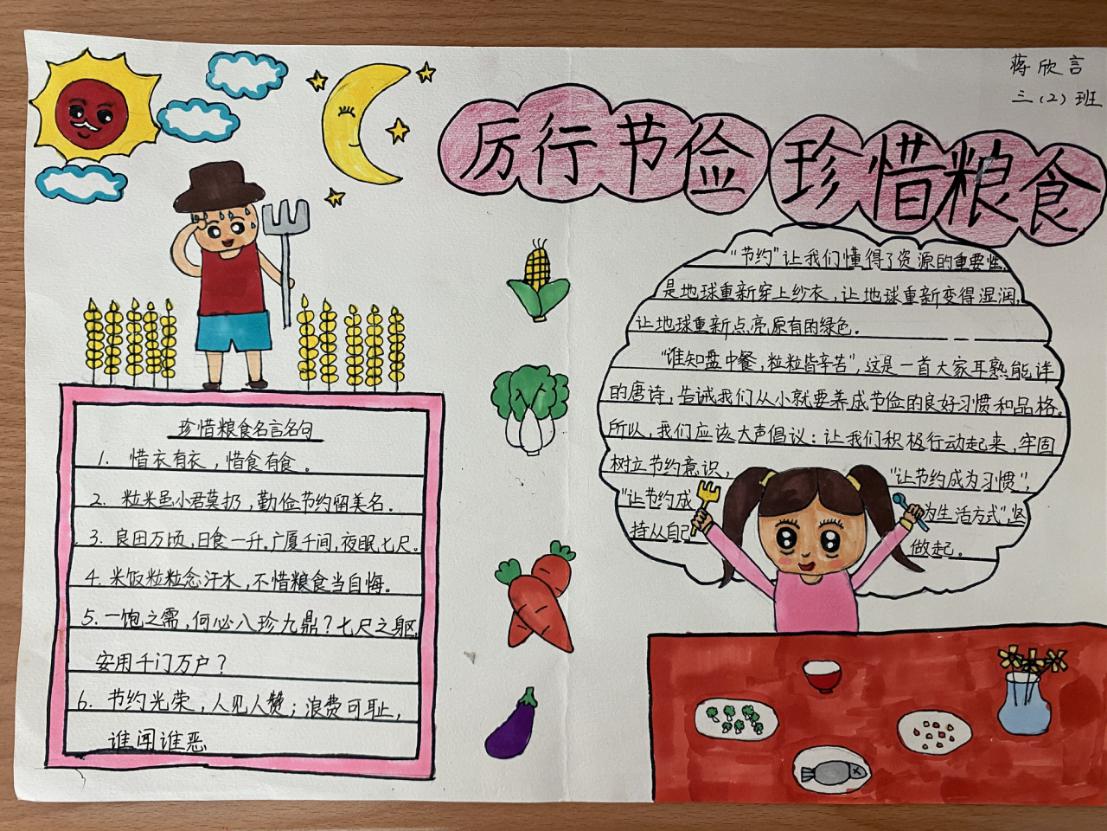 蒋欣言
三（2）班
厉行节俭 珍惜粮食
"节约"让我们懂得了资源的重要性,
是地球重新穿上纱衣，让地球重新变得湿润，
让地球重新点亮原有的绿色。
"谁知盘中餐，粒粒皆辛苦"，这是一首大家耳熟能详
的唐诗，告诫我们从小就要养成节俭的良好习惯和品格，
所以，我们应该大声倡议：让我们积极行动起来，牢固
树立节约意识，"让节约成为习惯"，
"让节约成为生活方式"坚
持从自己做起。
珍惜粮食名言名句
1. 惜衣有衣，惜食有食。
2. 粒米虽小君莫扔，勤俭节约留美名。
3. 良田万顷，日食一升。广厦千间，夜眠七尺。
4. 米饭粒粒念汗水，不惜粮食当自悔。
5. 一饱之需，何必八珍九鼎？七尺之躯，
安用千门万户？
6. 节约光荣，人见人赞；浪费可耻，
谁闻谁恶